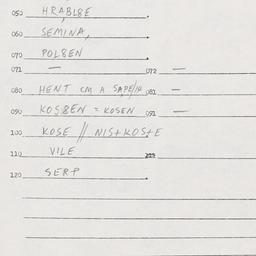 050 HRABLSE
060 SEMINA,
070 POLSEN
071 — 072 —
080 HENT CM A 081 —
090 KOSSEN = KOSEN 091 —
100 KOSE // NISTKOSTE
110 VILE
120 SERP